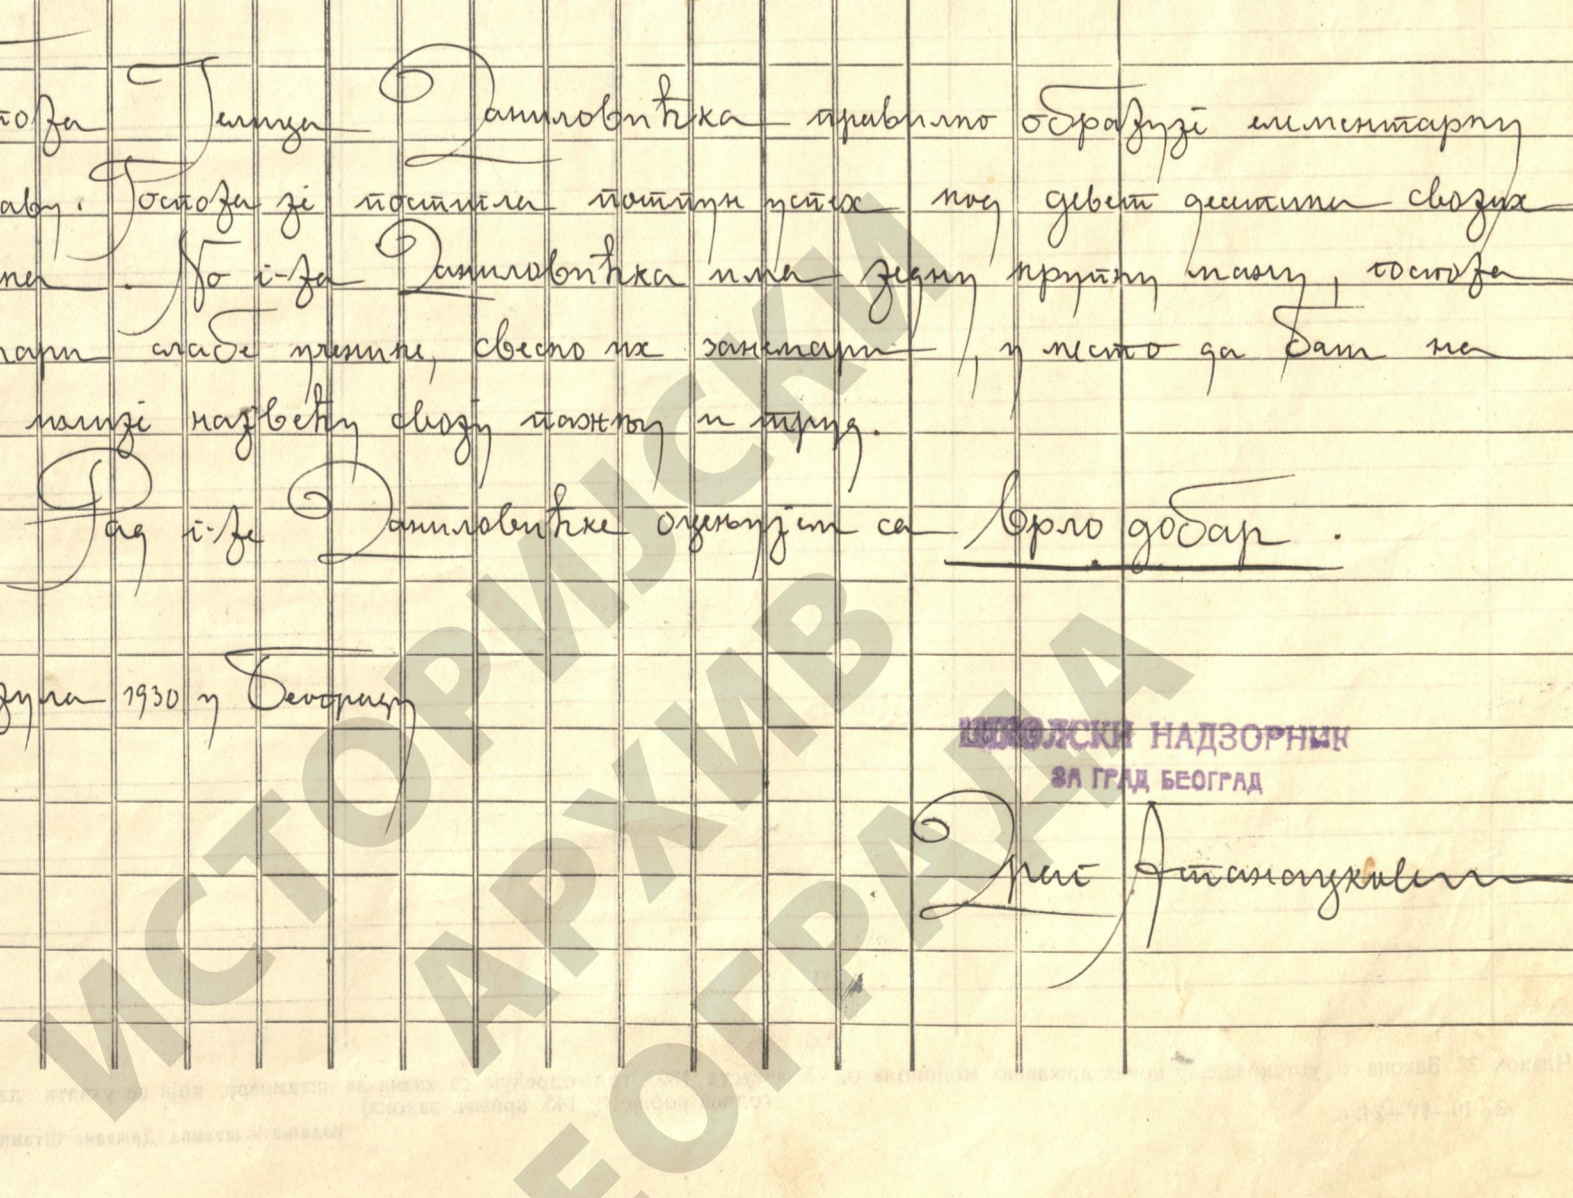 тоја Јелица Даниловићка правилно образује елементарну
аву. Госпоја је постигла потпун успех код девет десетина својих
ка. Но г-ја Даниловићка има једну крупну ману, госпоја
мари слабе ученике, свесно их занемари, у место да баш на
њих највећу своју пажњу и труд.
Рад г-је Даниловићке оцењујем са врло добар.
јула 1930 у Београду
ШКОЛСКИ НАДЗОРНИК
ЗА ГРАД БЕОГРАД
Драг Атанацковић
ИСТОРИЈСКИ
АРХИВ
ЕОГРАДА